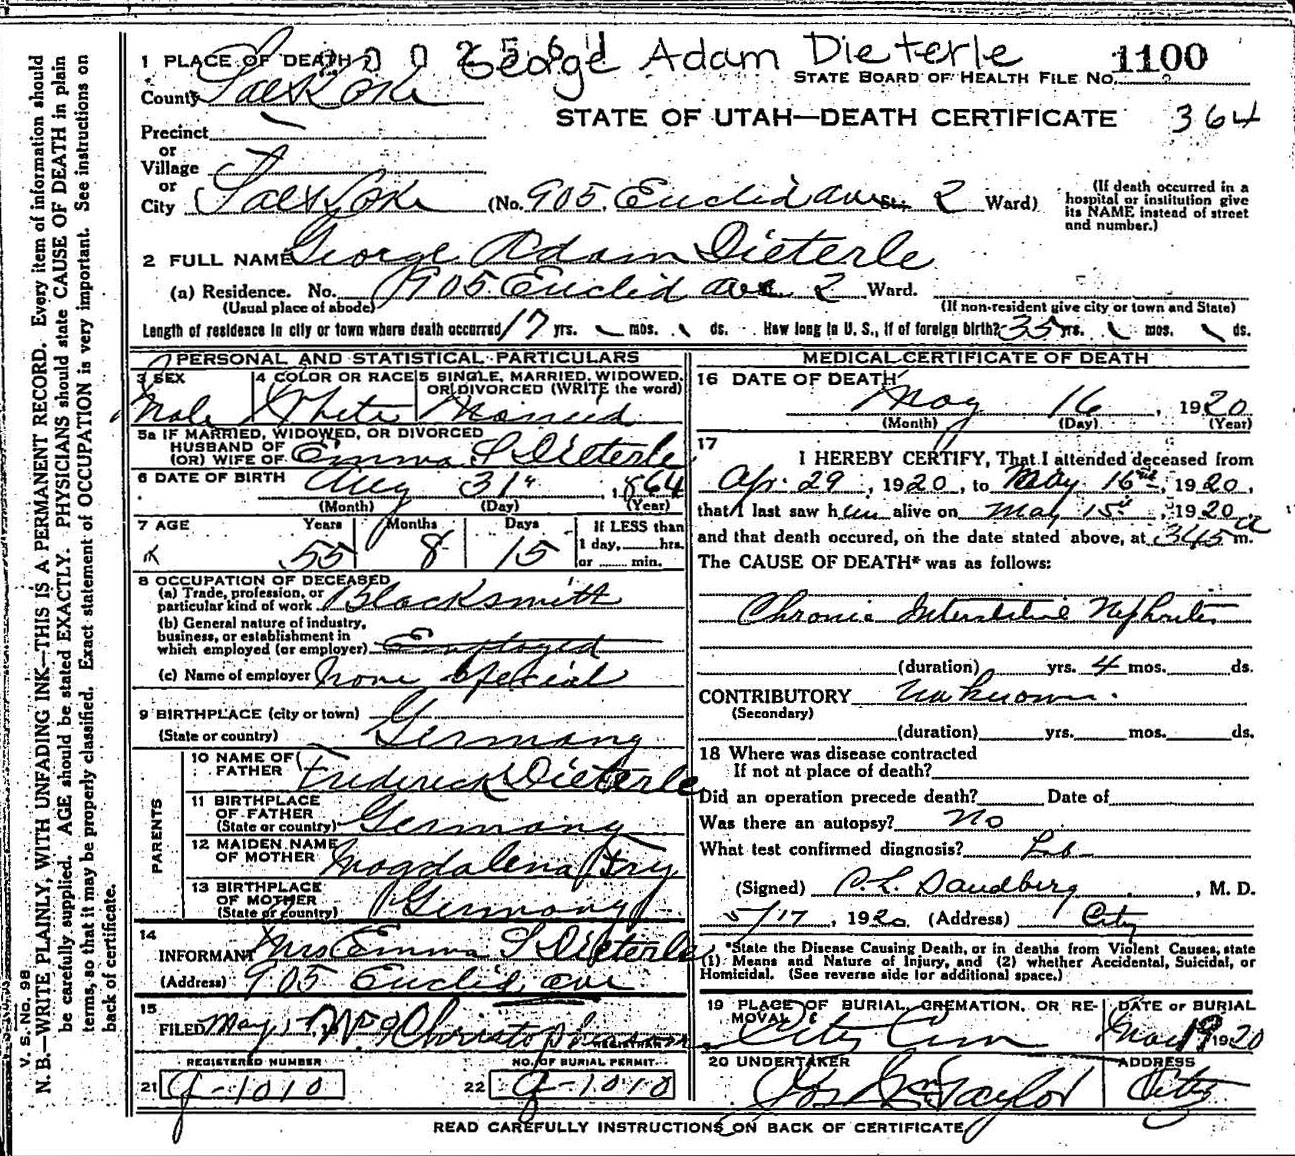 George Adam Dieterle
1100
1 PLACE OF DEATH
STATE BOARD OF HEALTH FILE No.
County Salt Lake
STATE OF UTAH—DEATH CERTIFICATE 364
Precinct
or
Village
or
City Salt Lake (No. 905 Euclid ave St. 2 Ward)
(If death occurred in a
hospital or institution give
its NAME instead of street
and number.)
2 FULL NAME George Adam Dieterle
(a) Residence. No. 905 Euclid ave 2 Ward.
(Usual place of abode) (If non-resident give city or town and State)
Length of residence in city or town where death occurred 17 yrs. mos. ds. How long in U. S., if of foreign birth? 35 yrs. mos. ds.
PERSONAL AND STATISTICAL PARTICULARS
3 SEX 4 COLOR OR RACE 5 SINGLE, MARRIED, WIDOWED,
OR DIVORCED (WRITE the word)
Male White Married
5a IF MARRIED, WIDOWED, OR DIVORCED
HUSBAND OF
(OR) WIFE OF Emma S Dieterle
6 DATE OF BIRTH Aug 31" 1864
(Month) (Day) (Year)
7 AGE Years Months Days If LESS than
1 day, hrs.
or min.
55 8 15
8 OCCUPATION OF DECEASED
(a) Trade, profession, or
particular kind of work Blacksmith
(b) General nature of industry,
business, or establishment in
which employed (or employer) Employed
(c) Name of employer None Special
9 BIRTHPLACE (city or town)
(State or country) Germany
PARENTS
10 NAME OF
FATHER Frederick Dieterle
11 BIRTHPLACE
OF FATHER
(State or country) Germany
12 MAIDEN NAME
OF MOTHER Magdalena Fry
13 BIRTHPLACE
OF MOTHER
(State or country) Germany
14
INFORMANT Mrs Emma S Dieterle
(Address) 905 Euclid ave
15
FILED May 17
REGISTRAR
REGISTERED NUMBER NO. OF BURIAL PERMIT
21 g-1010 22 g-1010
MEDICAL CERTIFICATE OF DEATH
16 DATE OF DEATH
May 16, 1920
(Month) (Day) (Year)
17
I HEREBY CERTIFY, That I attended deceased from
Apr. 29, 1920, to May 16th, 1920,
that I last saw him alive on May 15th, 1920
and that death occured, on the date stated above, at 345 a m.
The CAUSE OF DEATH* was as follows:
Chronic Interstitial Nephritis
(duration) yrs. 4 mos. ds.
CONTRIBUTORY Unknown.
(Secondary)
(duration) yrs. mos. ds.
18 Where was disease contracted
If not at place of death?
Did an operation precede death? Date of
Was there an autopsy? No
What test confirmed diagnosis? Lab
(Signed) C. L. Sandberg, M. D.
5/17, 1920 (Address) City
*State the Disease Causing Death, or in deaths from Violent Causes, state
(1) Means and Nature of Injury, and (2) whether Accidental, Suicidal, or
Homicidal. (See reverse side for additional space.)
19 PLACE OF BURIAL, CREMATION, OR RE- DATE OF BURIAL
MOVAL
City Cem May 19 1920
20 UNDERTAKER ADDRESS
Taylor City
READ CAREFULLY INSTRUCTIONS ON BACK OF CERTIFICATE
V. S. No. 98
N. B.—WRITE PLAINLY, WITH UNFADING INK—THIS IS A PERMANENT RECORD. Every item of information should
be carefully supplied. AGE should be stated EXACTLY. PHYSICIANS should state CAUSE OF DEATH in plain
terms, so that it may be properly classified. Exact statement of OCCUPATION is very important. See instructions on
back of certificate.